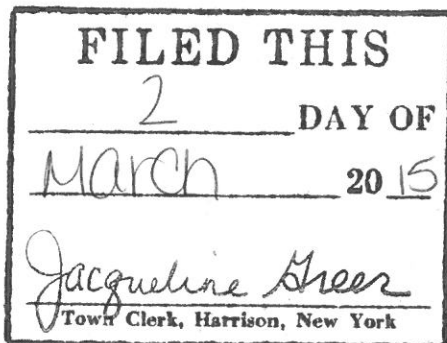 FILED THIS
2 DAY OF
March 20 15
Jacqueline Greer
Town Clerk, Harrison, New York